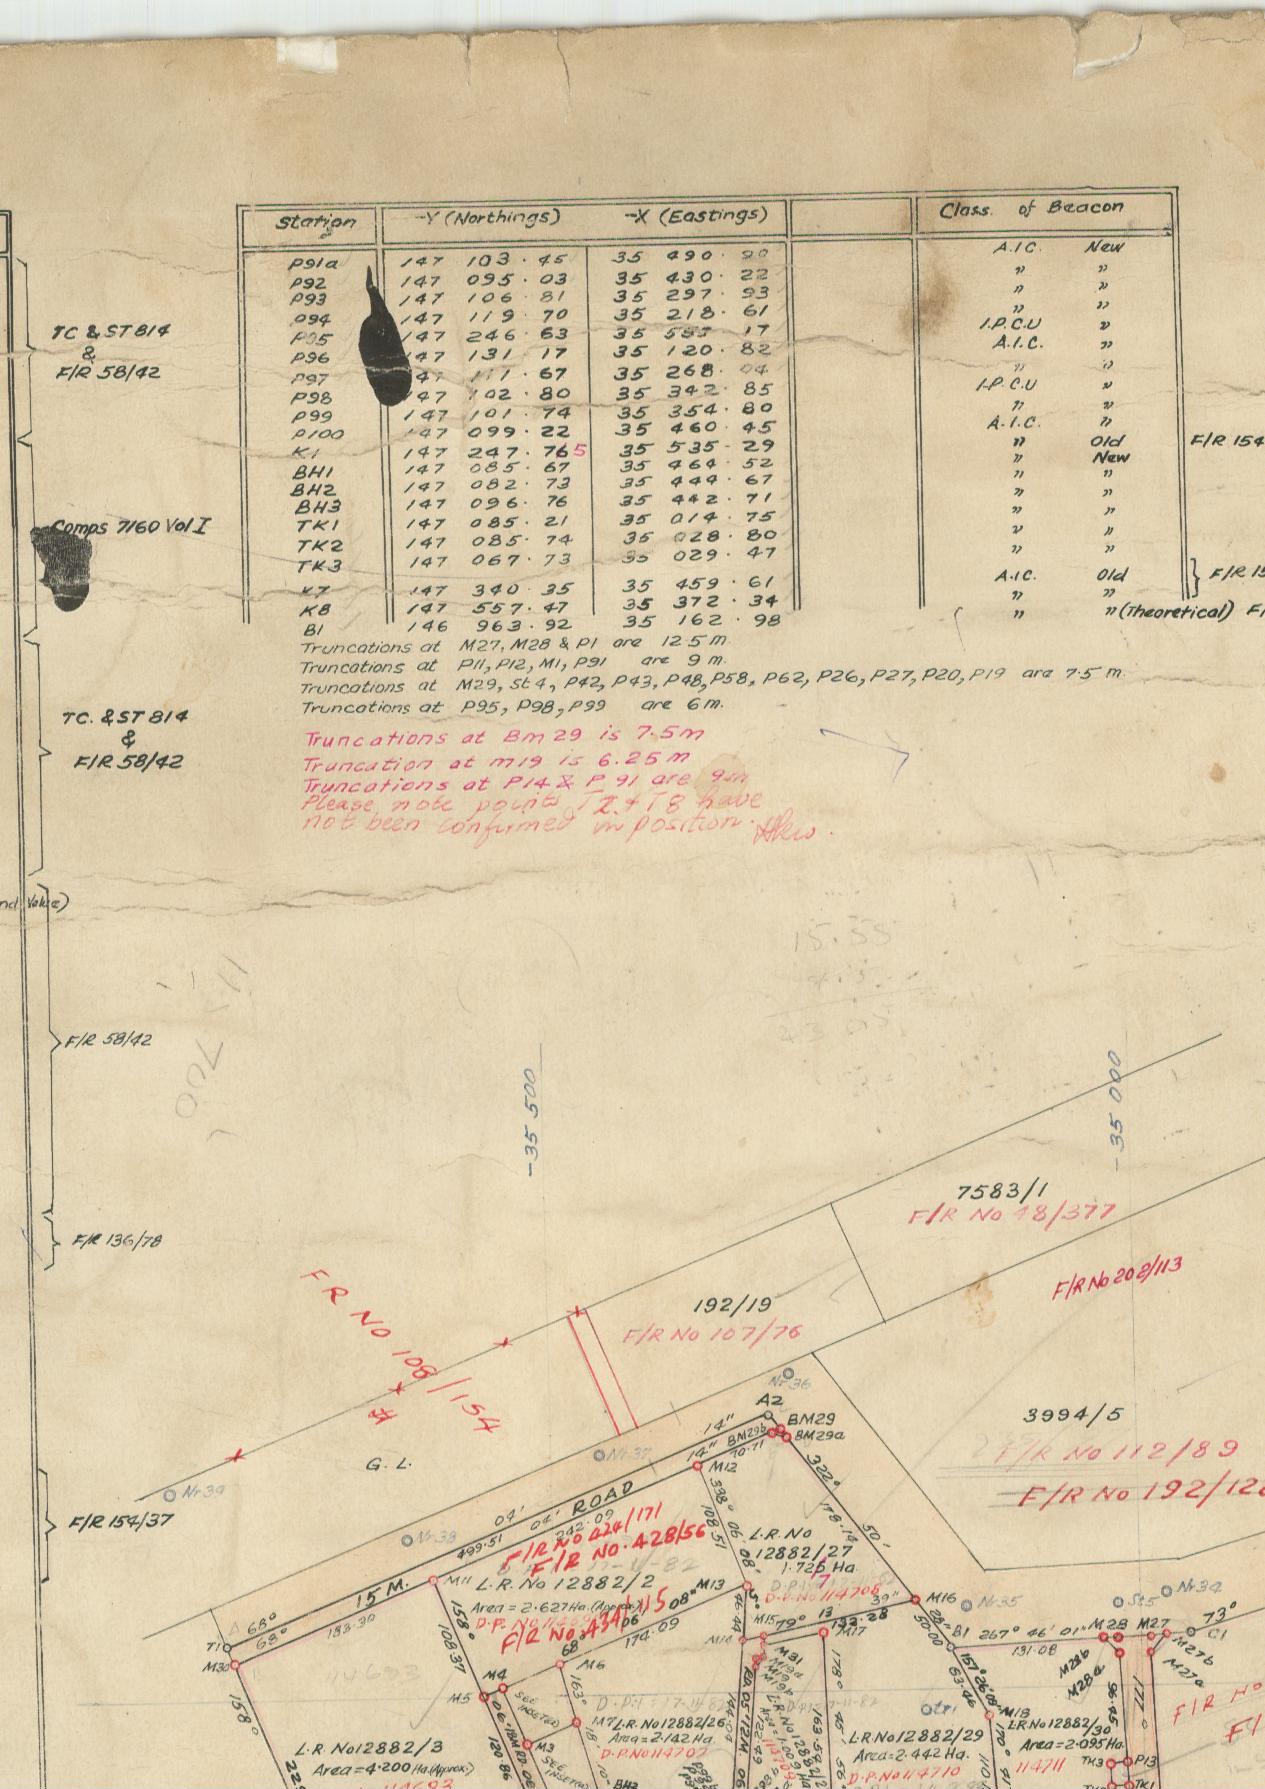 Station -Y (Northings) -X (Eastings) Class. of Beacon
P91a 147 103.45 35 490. A.I.C. New
P92 147 095.03 35 430.22 " "
P93 147 106.81 35 297.93 " "
P94 147 119.70 35 218.61 " "
P95 147 246.63 35 17 I.P.C.U "
P96 147 131.17 35 120.82 A.I.C. "
P97 147 111.67 35 268.04 " "
P98 147 102.80 35 342.85 I.P.C.U "
P99 147 101.74 35 354.80 " "
P100 147 099.22 35 460.45 A.I.C. "
K1 147 247.765 35 535.29 " Old
BH1 147 085.67 35 464.52 " New
BH2 147 082.73 35 444.67 " "
BH3 147 096.76 35 442.71 " "
TK1 147 085.21 35 014.75 " "
TK2 147 085.74 35 028.80 " "
TK3 147 067.73 35 029.47 " "
K7 147 340.35 35 459.61 A.I.C. Old
K8 147 557.47 35 372.34 " "
B1 146 963.92 35 162.98 " " (Theoretical)
TC & ST 814
&
F/R 58/42
Comps 7160 Vol I
F/R 154
F/R 15
Truncations at M27, M28 & P1 are 12.5 m.
Truncations at P11, P12, M1, P91 are 9 m.
Truncations at M29, St 4, P42, P43, P48, P58, P62, P26, P27, P20, P19 are 7.5 m.
Truncations at P95, P98, P99 are 6m.
Truncations at Bm 29 is 7.5m
Truncation at m19 is 6.25 m
Truncations at P14 & P 91 are 9m
Please note points & T8 have
not been confirmed in position.
TC. & ST 814
&
F/R 58/42
Value)
F/R 58/42
F/R 136/78
F/R 154/37
15.55
700
-35 500
-35 000
7583/1
F/R No 48/377
F/R No 202/113
192/19
F/R No 107/76
F R No 108/154
3994/5
F/R No 112/89
F/R No 192/122
G. L.
Nr 36
Nr 37
Nr 38
Nr 39
A2
BM29
BM29a
BM29b
14"
14"
70.71
M12
322°
178.14
50'
04' 04' ROAD
499.51
242.09
F/R No 424/171
F/R No. 428/56
338° 06' 08"
108.51
L.R. No
12882/27
1.726 Ha.
D.P. No 114708
15 M.
M11
L.R. No 12882/2
Area = 2.627 Ha. (Approx.)
F/R No 434/115
M13
08"
06
174.09
68°
T1
68°
68°
183.30
M30
158°
158°
108.37
M16
39"
13
132.28
79°
M15
M14
46.44
M17
Nr 35
St 5
Nr 34
28"
50.00
B1
267° 46' 01"
131.08
M28
M27
73°
C1
M27b
M27a
M28b
M28a
M31
M19a
M19b
M4
M5
M6
163°
M7
M3
SEE INSETED
120.86
L.R. No 12882/26
Area = 2.142 Ha.
D.P. No 114707
L.R. No 12882/3
Area = 4.200 Ha. (Approx.)
114693
157° 26' 08"
63.46
M18
178° 45'
L.R. No 12882/29
Area = 2.442 Ha.
D.P. No 114710
L.R. No 12882/30
Area = 2.095 Ha.
114711
96.45
177°
170°
TK3
P13
TK1
BH2